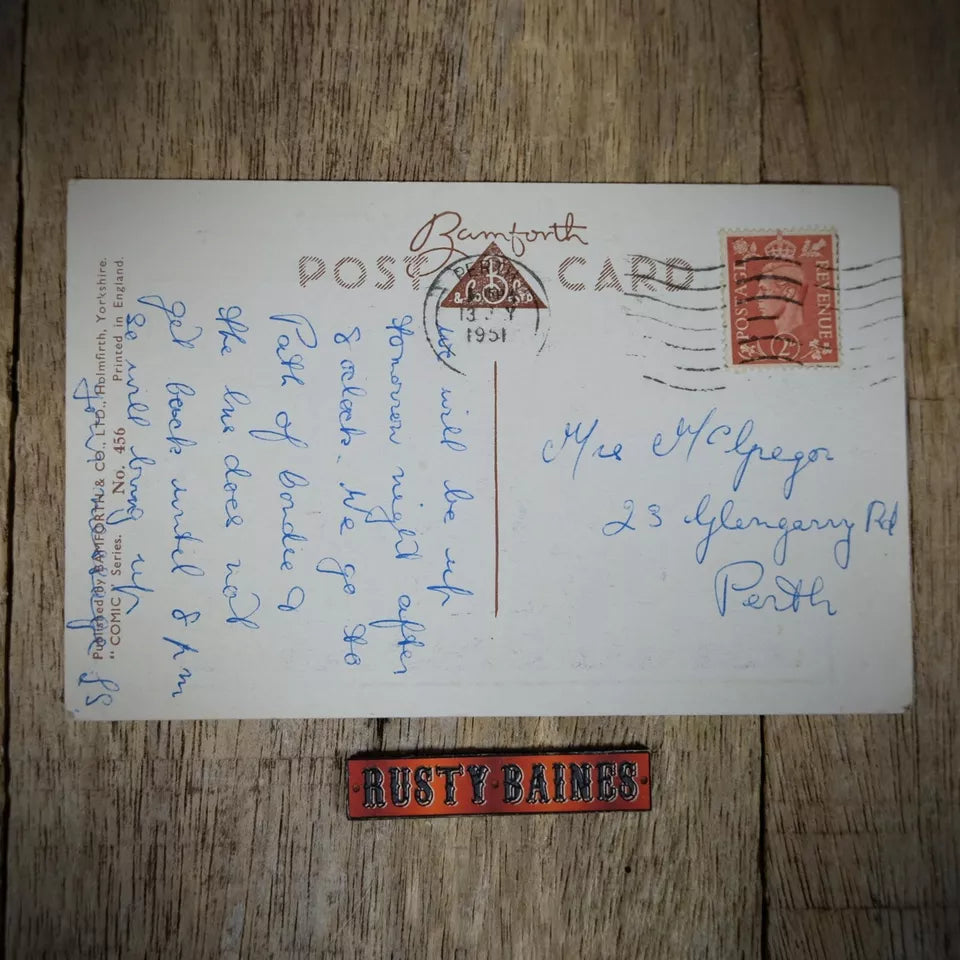 Bamforth
POST CARD
& Co. LTD
PERTH
13 JLY
1951
POSTAGE
REVENUE
2D
we will be up
tomorrow night after
8 oclock. We go to
Path of Condie &
the bus does not
get back until 8 pm
So will bring up
Mrs McGregor
23 Glengarry Rd
Perth
Published by BAMFORTH & CO., LTD., Holmfirth, Yorkshire.
"COMIC" Series. No. 456 Printed in England.
RUSTY BAINES